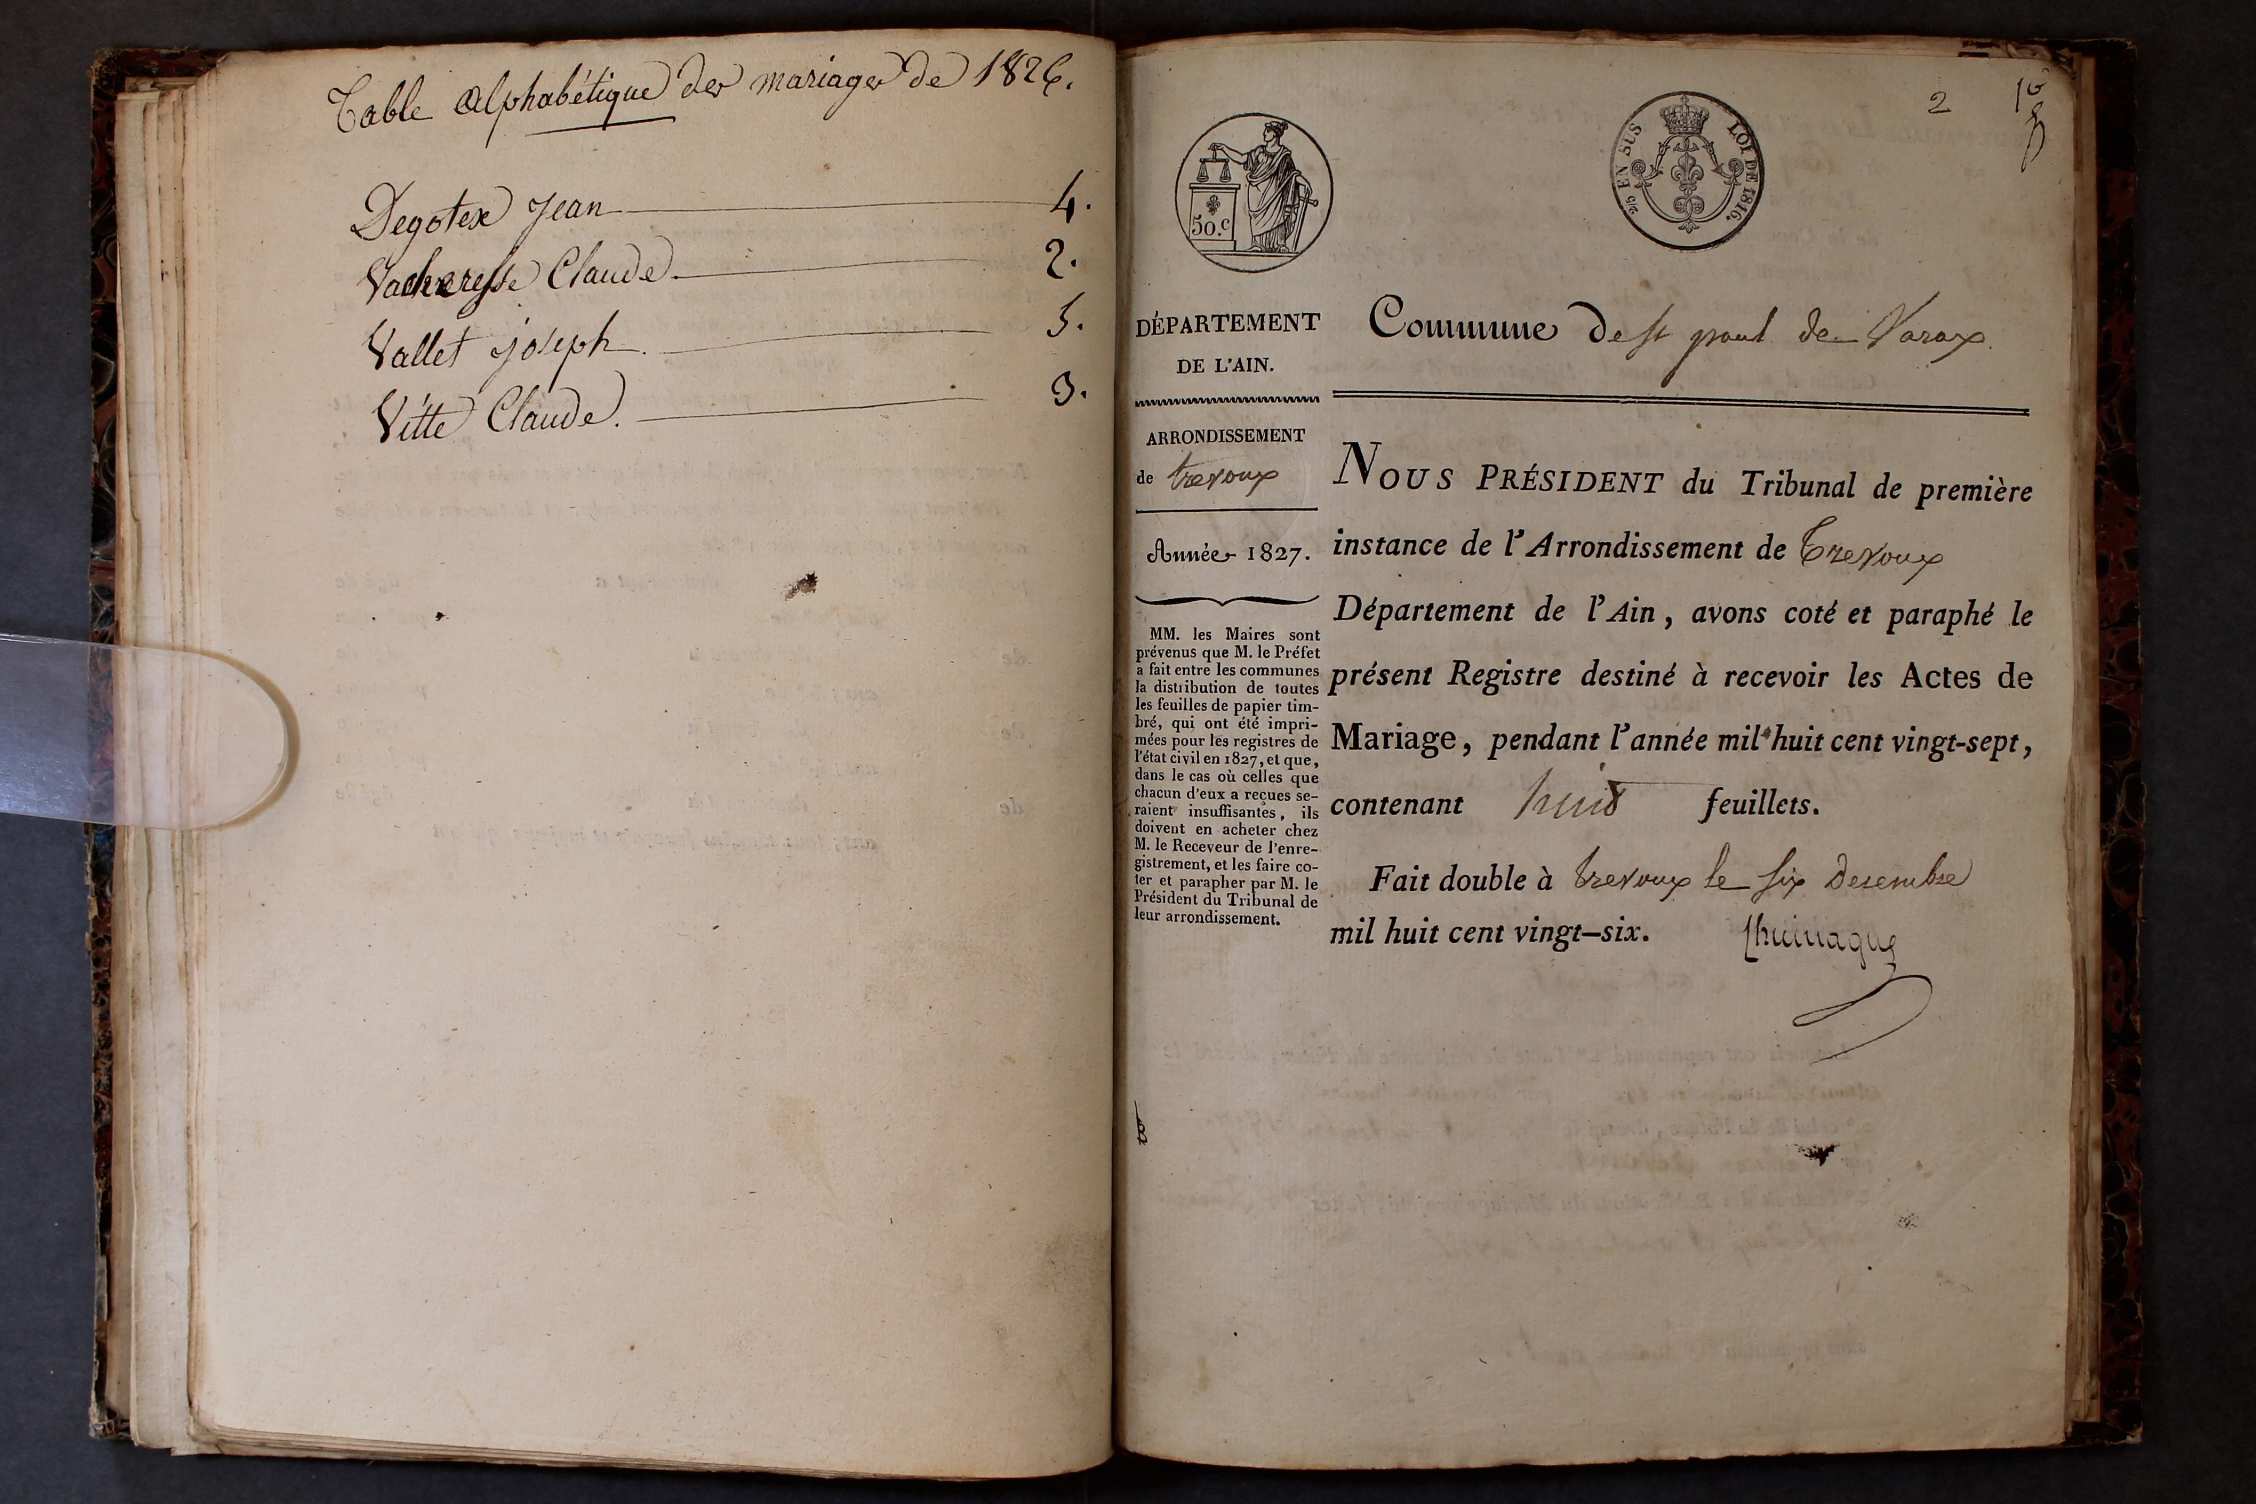 Table Alphabétique des mariages de 1826.
Degotex Jean 4.
Vacheresse Claude 2.
Vallet joseph 5.
Vitte Claude. 3.
2
50.c
2/5 EN SUS LOI DE 1816.
DÉPARTEMENT
DE L'AIN.
ARRONDISSEMENT
de trevoux
Année 1827.
MM. les Maires sont
prévenus que M. le Préfet
a fait entre les communes
la distribution de toutes
les feuilles de papier tim-
bré, qui ont été impri-
mées pour les registres de
l'état civil en 1827, et que,
dans le cas où celles que
chacun d'eux a reçues se-
raient insuffisantes, ils
doivent en acheter chez
M. le Receveur de l'enre-
gistrement, et les faire co-
ter et parapher par M. le
Président du Tribunal de
leur arrondissement.
Commune de st paul de Varax
NOUS PRÉSIDENT du Tribunal de première
instance de l'Arrondissement de Trevoux
Département de l'Ain, avons coté et paraphé le
présent Registre destiné à recevoir les Actes de
Mariage, pendant l'année mil huit cent vingt-sept,
contenant huit feuillets.
Fait double à trevoux le six Decembre
mil huit cent vingt-six.